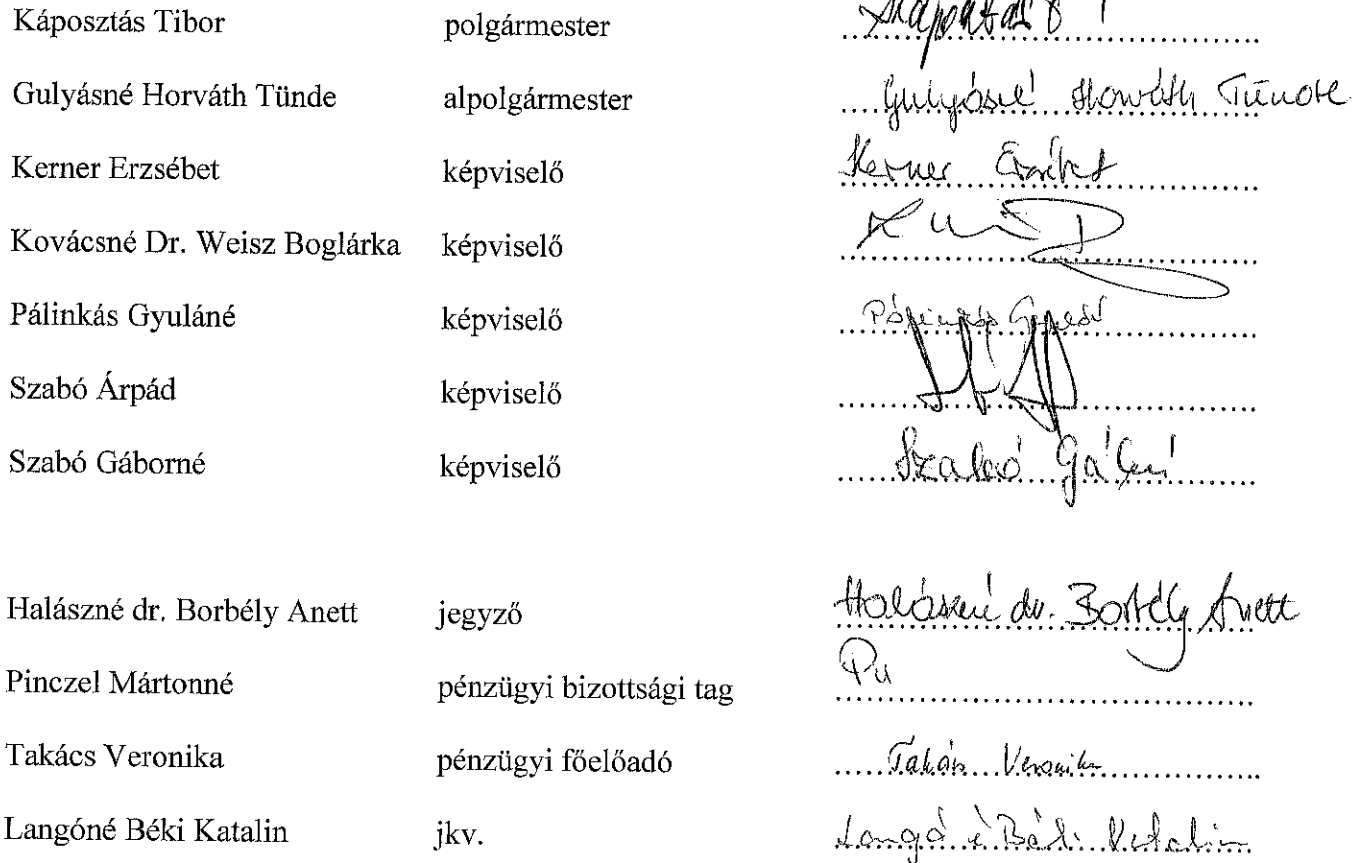 Káposztás Tibor polgármester
Gulyásné Horváth Tünde alpolgármester Gulyásné Horváth Tünde
Kerner Erzsébet képviselő Kerner Erzsébet
Kovácsné Dr. Weisz Boglárka képviselő
Pálinkás Gyuláné képviselő
Szabó Árpád képviselő
Szabó Gáborné képviselő Szabó Gáborné
Halászné dr. Borbély Anett jegyző Halászné dr. Borbély Anett
Pinczel Mártonné pénzügyi bizottsági tag
Takács Veronika pénzügyi főelőadó Takács Veronika
Langóné Béki Katalin jkv. Langóné Béki Katalin